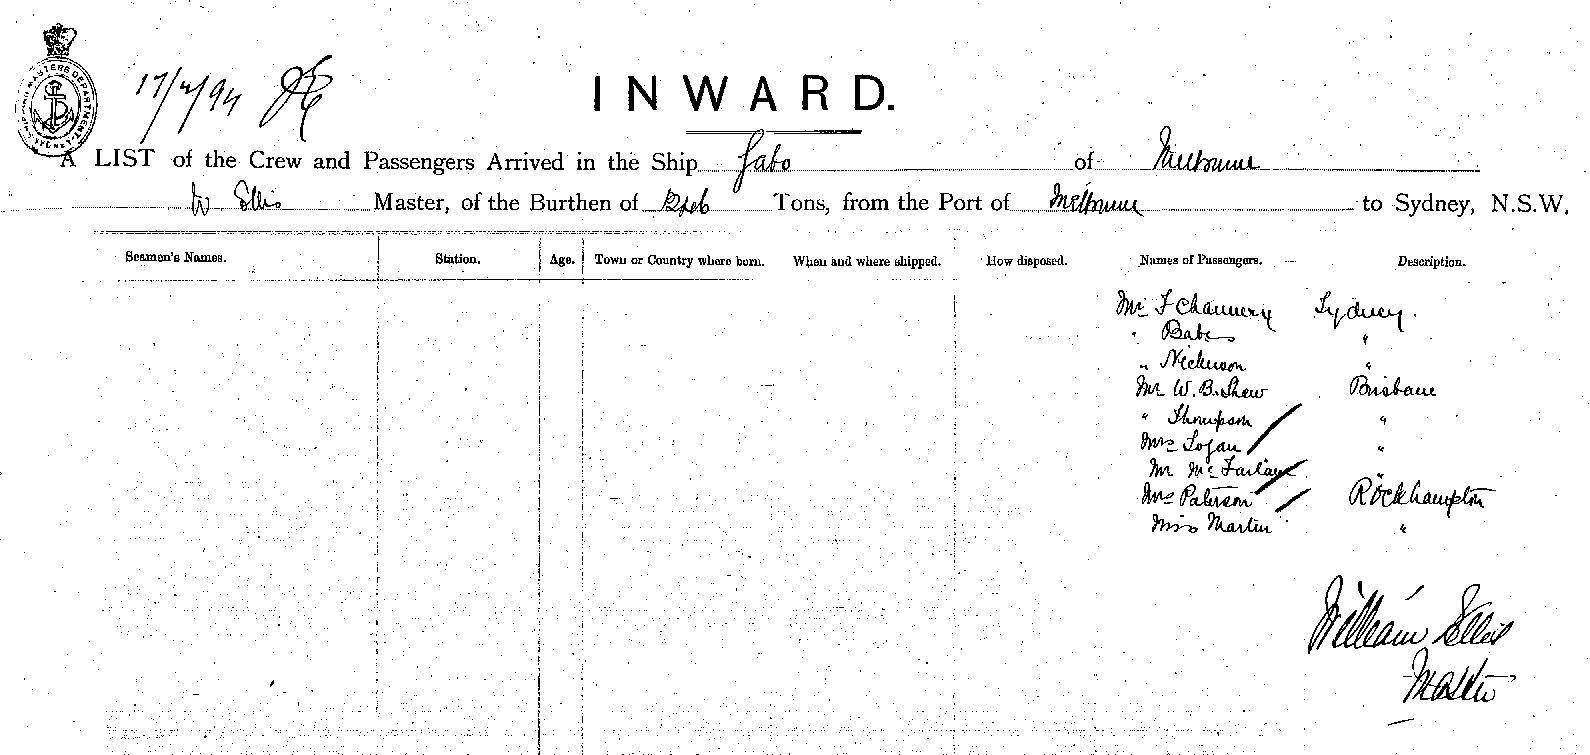 SHIPPING MASTERS DEPARTMENT SYDNEY
17/4/94
INWARD.
A LIST of the Crew and Passengers Arrived in the Ship Gabo of Melbourne
W Ellis Master, of the Burthen of Tons, from the Port of Melbourne to Sydney, N.S.W.
Seamen's Names. Station. Age. Town or Country where born. When and where shipped. How disposed. Names of Passengers. Description.
Mr F Sydney.
" "
" "
Mr W. B. Shaw Brisbane
" Thompson "
Mrs Logan "
Mr McFarlane "
Mrs Paterson Rockhampton
Miss Martin "
William Ellis
Master